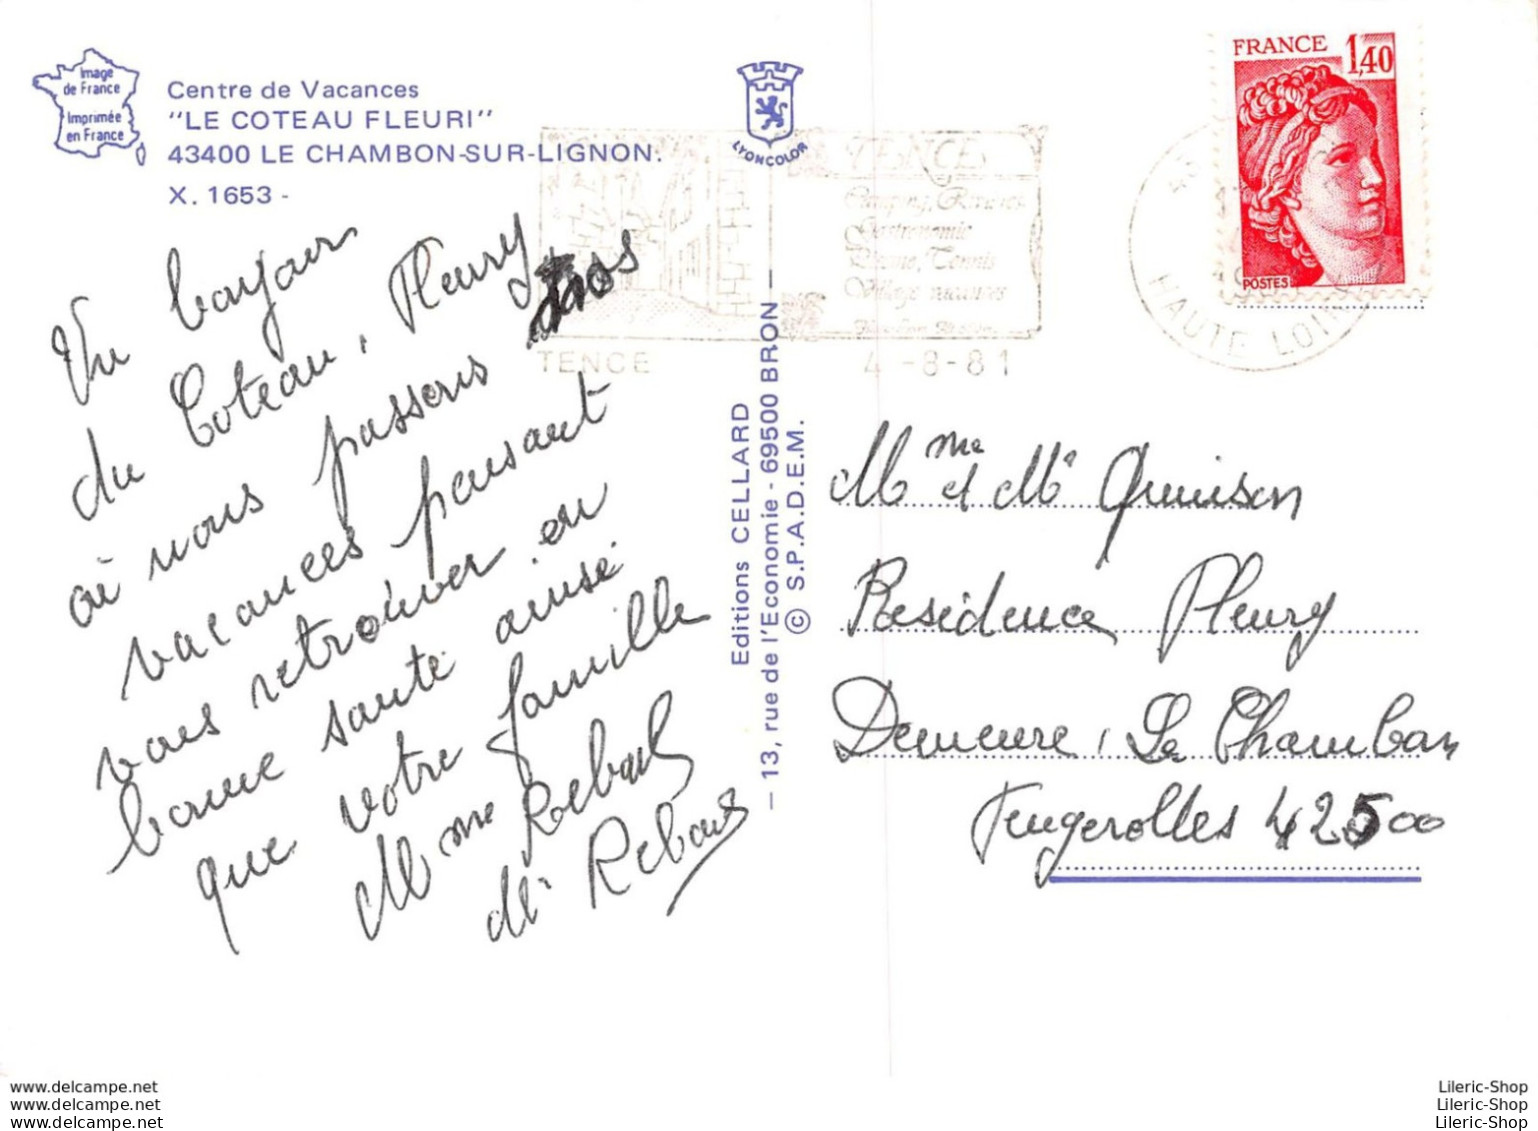 Image
de France
Imprimée
en France
Centre de Vacances
"LE COTEAU FLEURI"
43400 LE CHAMBON-SUR-LIGNON.
X. 1653 -
LYONCOLOR
FRANCE 1,40
POSTES
TENCE
Camping,
Gastronomie
Tennis
Village vacances
TENCE 4-8-81
HAUTE LOIRE
Un bonjour
du Coteau, Fleury
où nous passons nos
vacances pensant
vous retrouver en
bonne santé ainsi
que votre famille
Mme Rebaud
Mr Rebaud
Editions CELLARD
— 13, rue de l'Economie - 69500 BRON —
© S.P.A.D.E.M.
Mme et Mr
Résidence Fleury
Demeure, Le Chambon
Feugerolles 42500
www.delcampe.net
www.delcampe.net
www.delcampe.net
Lileric-Shop
Lileric-Shop
Lileric-Shop